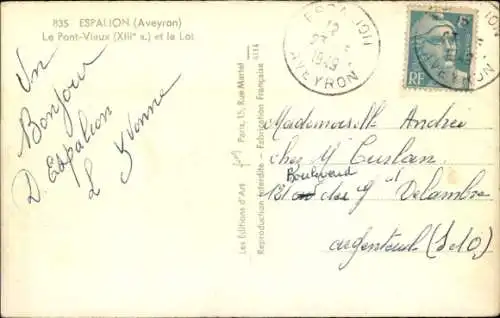 835 ESPALION (Aveyron)
Le Pont-Vieux (XIIIe s.) et le Lot
Un
Bonjour
D'Espalion
Yvonne
Les Editions d'Art Paris, 15, Rue Martel
Reproduction interdite - Fabrication Française 4114
ESPALION
12
1949
AVEYRON
RF
AVEYRON
Mademoiselle Andrée
chez
Boulevard
131 Delambre
argenteuil (S & O)